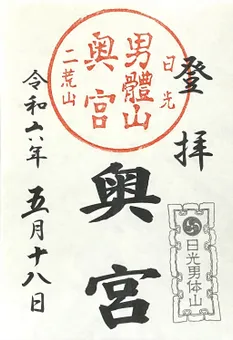 登拝
日光
男體山
奥宮
二荒山
奥宮
日光男体山
令和六年五月十八日